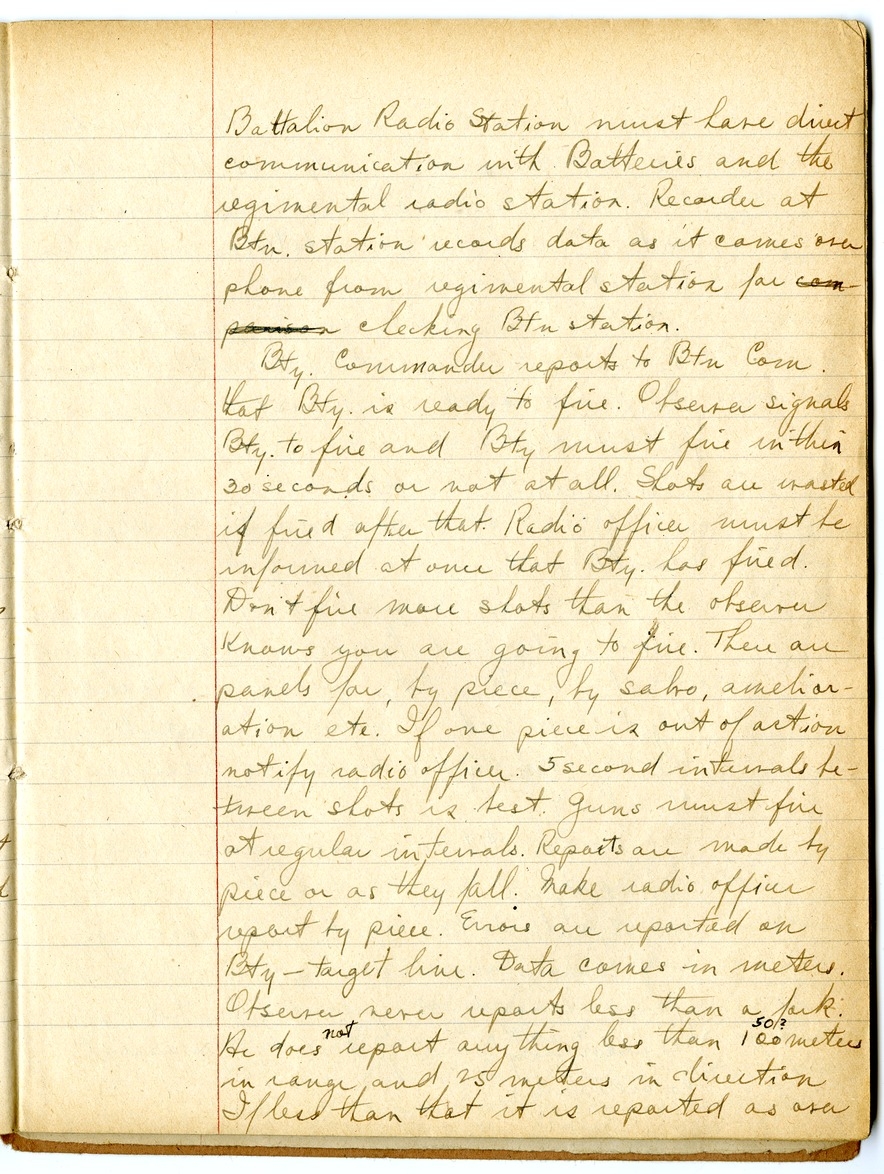 Battalion Radio Station must have direct
communication with Batteries and the
regimental radio station. Recorder at
Btn. station records data as it comes over
phone from regimental station for com-
parison checking Btn station.
Bty. Commander reports to Btn Com.
that Bty. is ready to fire. Observer signals
Bty. to fire and Bty must fire within
30 seconds or not at all. Shots are wasted
if fired after that. Radio officer must be
informed at once that Bty. has fired.
Don't fire more shots than the observer
knows you are going to fire. There are
panels for, by piece, by salvo, amelior-
ation etc. If one piece is out of action
notify radio officer. 5 second intervals be-
tween shots is best. Guns must fire
at regular intervals. Reports are made by
piece or as they fall. Make radio officer
report by piece. Errors are reported on
Bty-target line. Data comes in meters.
Observer never reports less than a fork.
50?
He does not report anything less than 100 meters
in range and 25 meters in direction
If less than that it is reported as over